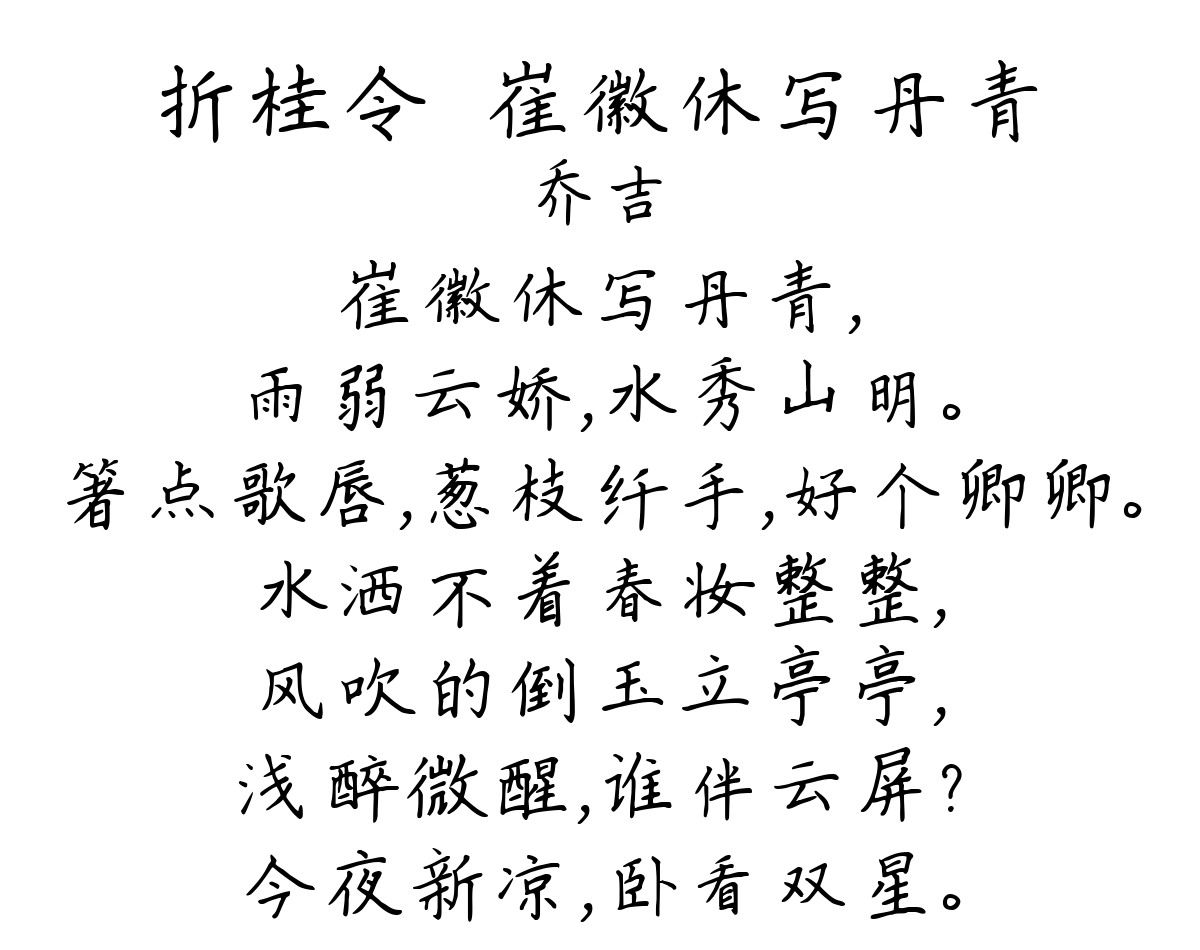 折桂令 崔徽休写丹青
乔吉
崔徽休写丹青,
雨弱云娇,水秀山明。
箸点歌唇,葱枝纤手,好个卿卿。
水洒不着春妆整整,
风吹的倒玉立亭亭,
浅醉微醒,谁伴云屏?
今夜新凉,卧看双星。